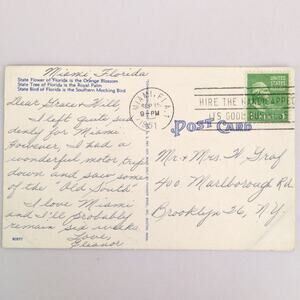 Miami Florida
State Flower of Florida is the Orange Blossom
State Tree of Florida is the Royal Palm
State Bird of Florida is the Southern Mocking Bird
Dear Grace & Will,
I left quite sud
denly for Miami.
However, I had a
wonderful motor trip
down and saw some
of the "Old South"
I love Miami
and I'll probably
remain six weeks.
Love,
Eleanor
MIAMI, FLA.
SEP
PM
1951
HIRE THE HANDICAPPED
IT'S GOOD BUSINESS
POST CARD
Mr. & Mrs. W Graf
400 Marlborough Rd.
Brooklyn 26, N.Y.